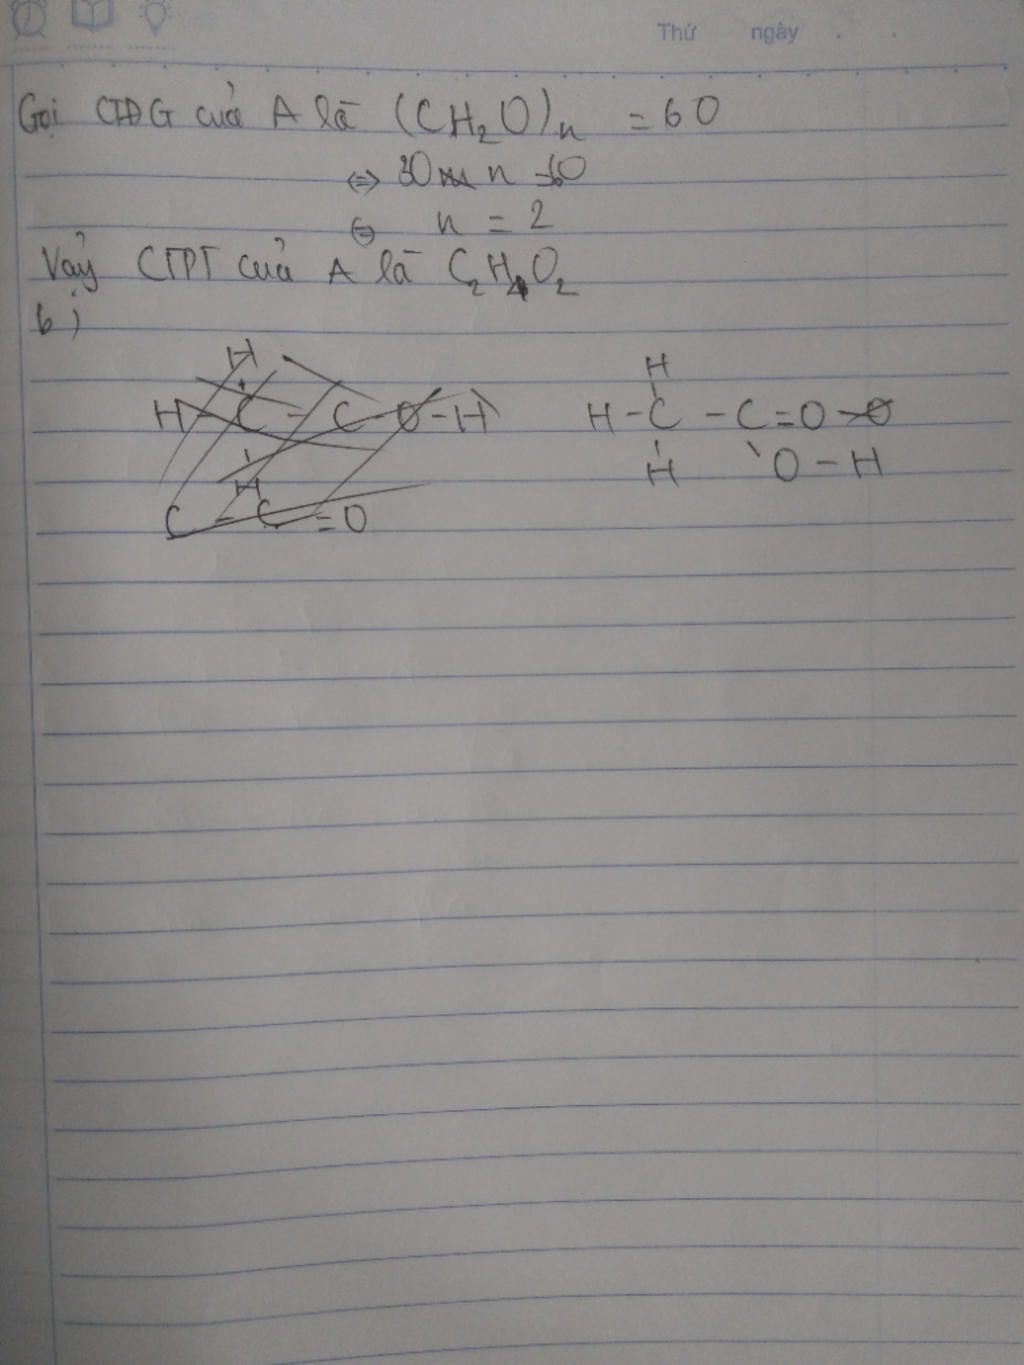 Thứ ngày . .
Gọi CTĐG của A là (CH₂O)ₙ = 60
⇔ 30 n = 60
⇔ n = 2
Vậy CTPT của A là C₂H₄O₂
b)
H H
H - C - C - O - H H - C - C = O - O
H H O - H
C - C = O